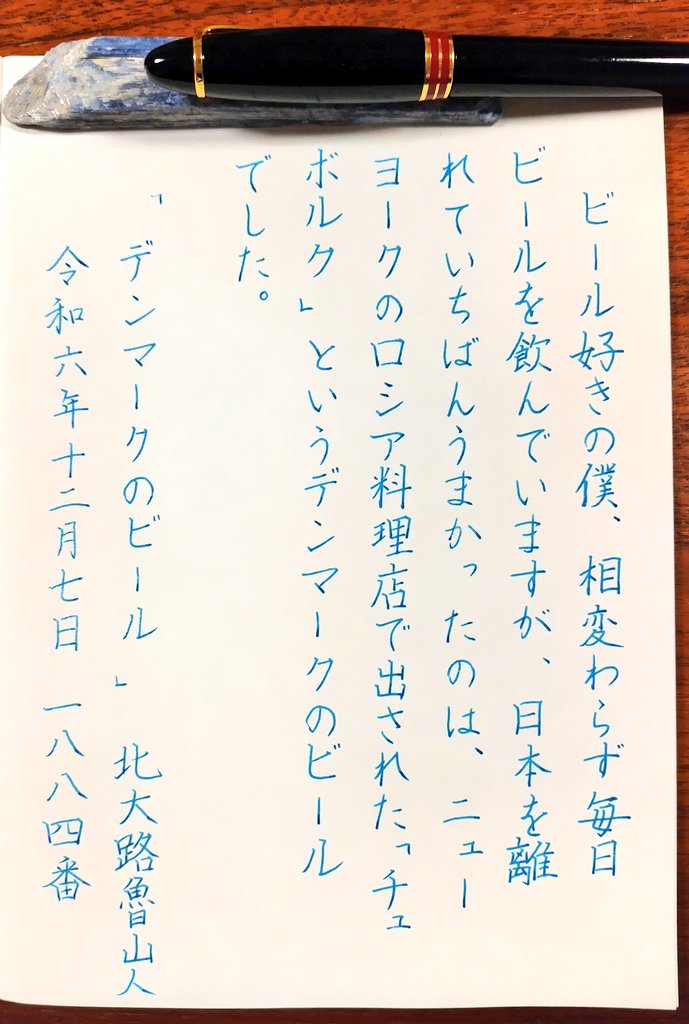 ビール好きの僕、相変わらず毎日
ビールを飲んでいますが、日本を離
れていちばんうまかったのは、ニュー
ヨークのロシア料理店で出された「チュ
ボルク」というデンマークのビール
でした。
「デンマークのビール」 北大路魯山人
令和六年十二月七日 一八八四番